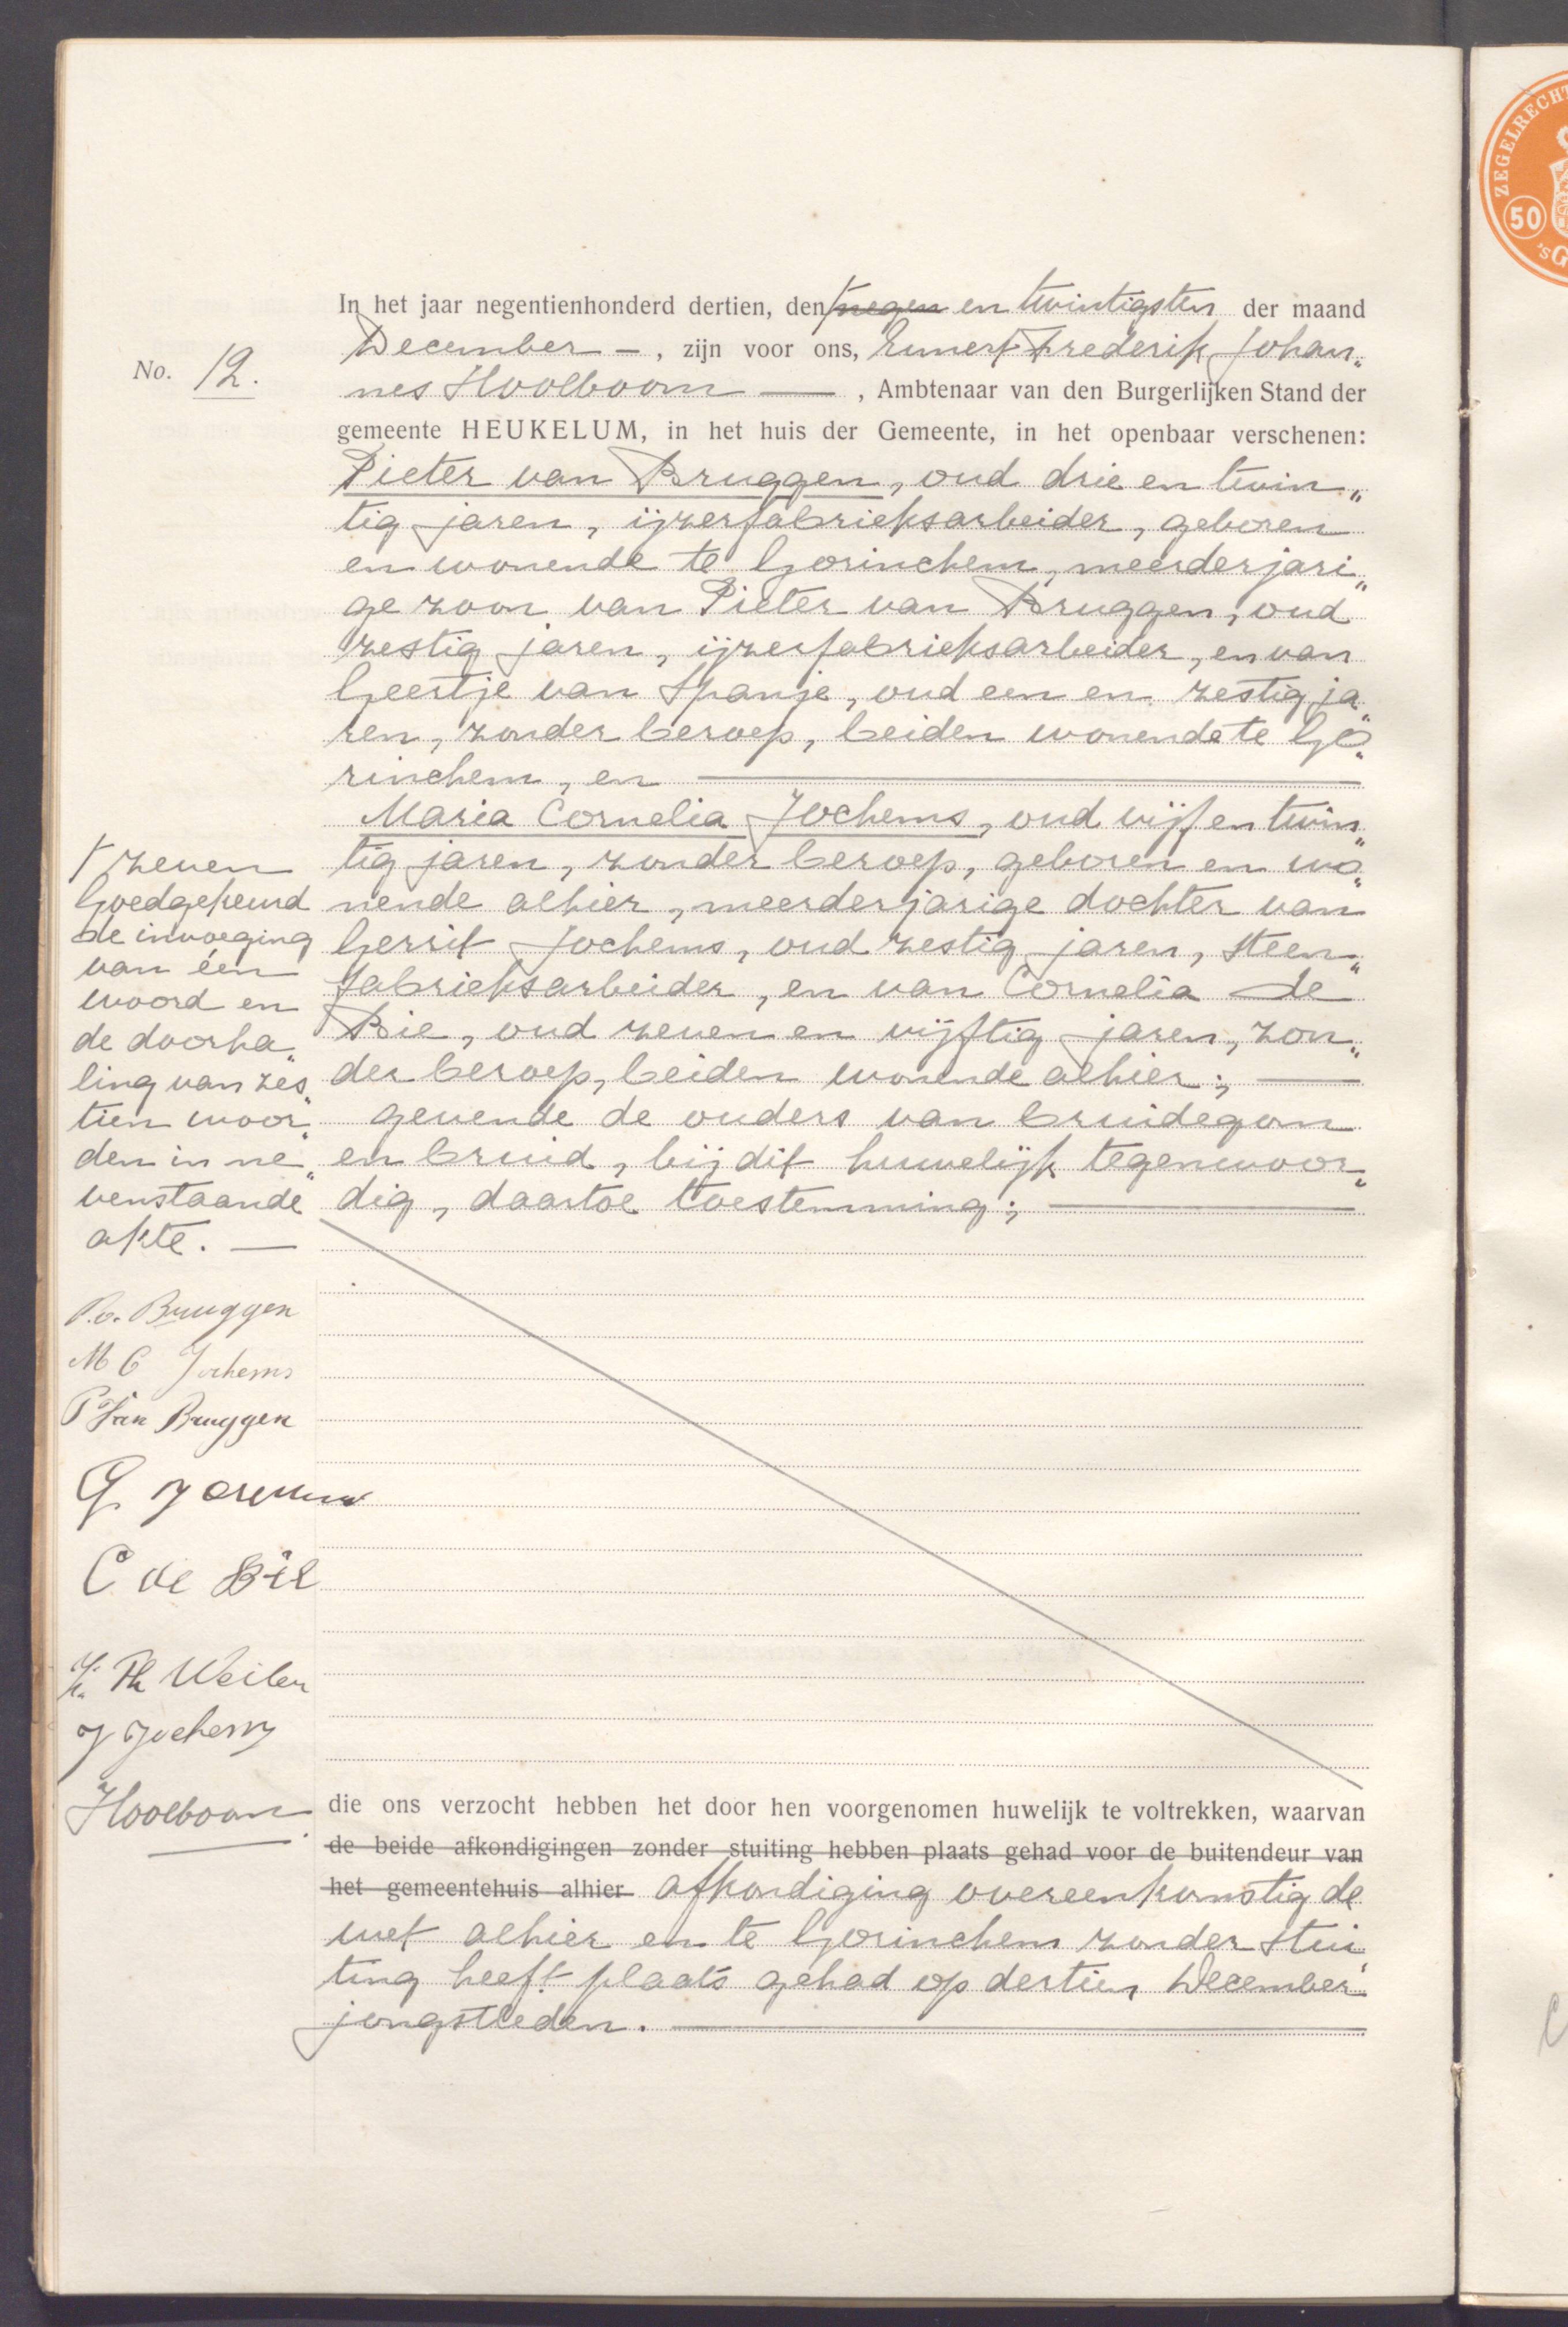 In het jaar negentienhonderd dertien, den ͞ negen en twintigsten der maand
No. 12.
December — , zijn voor ons, Emmert Frederik Johan„
nes Hoolboom — , Ambtenaar van den Burgerlijken Stand der
gemeente HEUKELUM, in het huis der Gemeente, in het openbaar verschenen:
Pieter van Bruggen, oud drie en twin„
tig jaren, ijzerfabrieksarbeider, geboren
en wonende te Gorinchem, meerderjari„
ge zoon van Pieter van Bruggen, oud
zestig jaren, ijzerfabrieksarbeider, en van
Geertje van Spanje, oud een en zestig ja„
ren, zonder beroep, beiden wonende te Go„
rinchem, en —
Maria Cornelia Jochems, oud vijf en twin„
tig jaren, zonder beroep, geboren en wo„
nende alhier, meerderjarige dochter van
Gerrit Jochems, oud zestig jaren, steen„
fabrieksarbeider, en van Cornelia de
Bie, oud zeven en vijftig jaren, zon„
der beroep, beiden wonende alhier; —
gevende de ouders van bruidegom
en bruid, bij dit huwelijk tegenwoor„
dig, daartoe toestemming; —
zeven
Goedgekeurd
de invoeging
van één
woord en
de doorha„
ling van zes„
tien woor„
den in ne„
venstaande
akte. —
P.v. Bruggen
M C Jochems
P Van Bruggen
C de Bie
Th Weiler
J Jochems
Hoolboom
die ons verzocht hebben het door hen voorgenomen huwelijk te voltrekken, waarvan
de beide afkondigingen zonder stuiting hebben plaats gehad voor de buitendeur van
het gemeentehuis alhier afkondiging overeenkomstig de
wet alhier en te Gorinchem zonder stui„
ting heeft plaats gehad op dertien December
jongstleden. —
ZEGELRECHT
50